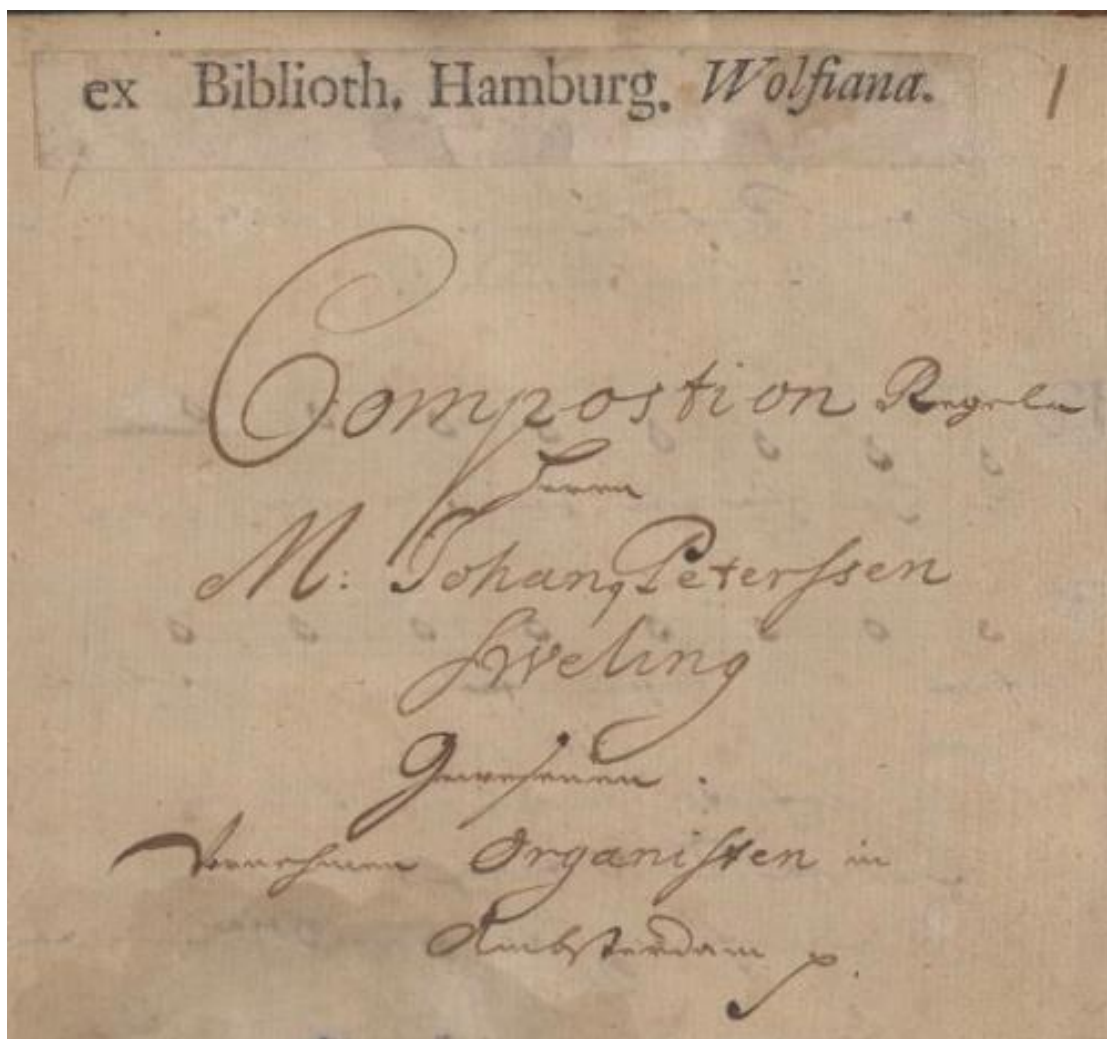 ex Biblioth. Hamburg. Wolfiana.
1
Compostion Regeln
Herrn
M: Johan Peterssen
Sweling
Gewesenen.
Vornehmen Organisten in
Ambsterdam p.